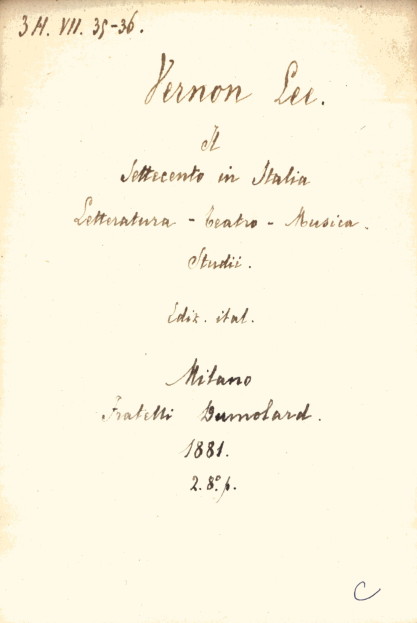 3 H. VII. 35-36.
Vernon Lee.
Il
Settecento in Italia
Letteratura - Teatro - Musica.
Studii.
Ediz. ital.
Milano
Fratelli Dumolard.
1881.
2. 8º p.
C